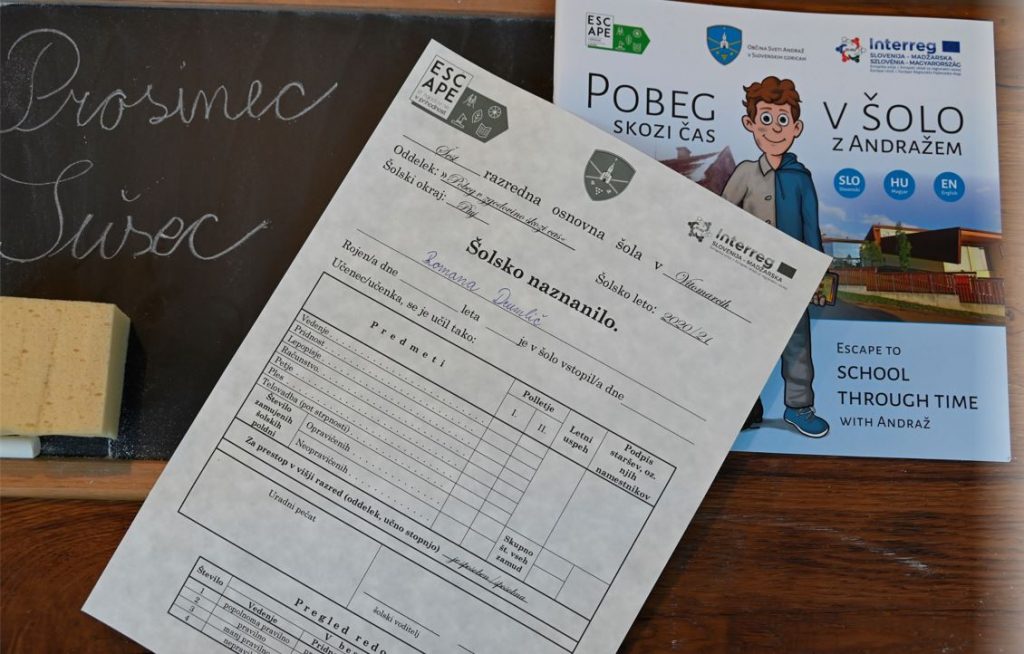 Prosinec
Sušec
ESC
APE
iz zgodovine
v prihodnost
Šest razredna osnovna šola v Vitomarcih
Oddelek: »Pobeg iz zgodovine skozi čas«
Šolski okraj: Ptuj
Šolsko leto: 2020/21
Interreg
SLOVENIJA - MADŽARSKA
Šolsko naznanilo.
Romana Drumlič
Rojen/a dne leta je v šolo vstopil/a dne
Učenec/učenka, se je učil tako:
Predmeti
Polletje
I. II.
Letni uspeh
Podpis staršev, oz. njih namestnikov
Vedenje
Pridnost
Lepopisje
Računstvo
Petje
Ples
Telovadba (pot strpnosti)
Število zamujenih šolskih poldni
Opravičenih
Neopravičenih
Skupno št. vseh zamud
Za prestop v višji razred (oddelek, učno stopnjo)
Uradni pečat
šolski voditelj
Pregled redo
Število
Vedenje
1
2
3
4
popolnoma pravilno
pravilno
manj pravilno
ESC
APE
OBČINA SVETI ANDRAŽ
V SLOVENSKIH GORICAH
Interreg
SLOVENIJA - MADŽARSKA
SZLOVÉNIA - MAGYARORSZÁG
POBEG
SKOZI ČAS
V ŠOLO
Z ANDRAŽEM
SLO
Slovenski
HU
Magyar
EN
English
ESCAPE TO
SCHOOL
THROUGH TIME
WITH ANDRAŽ